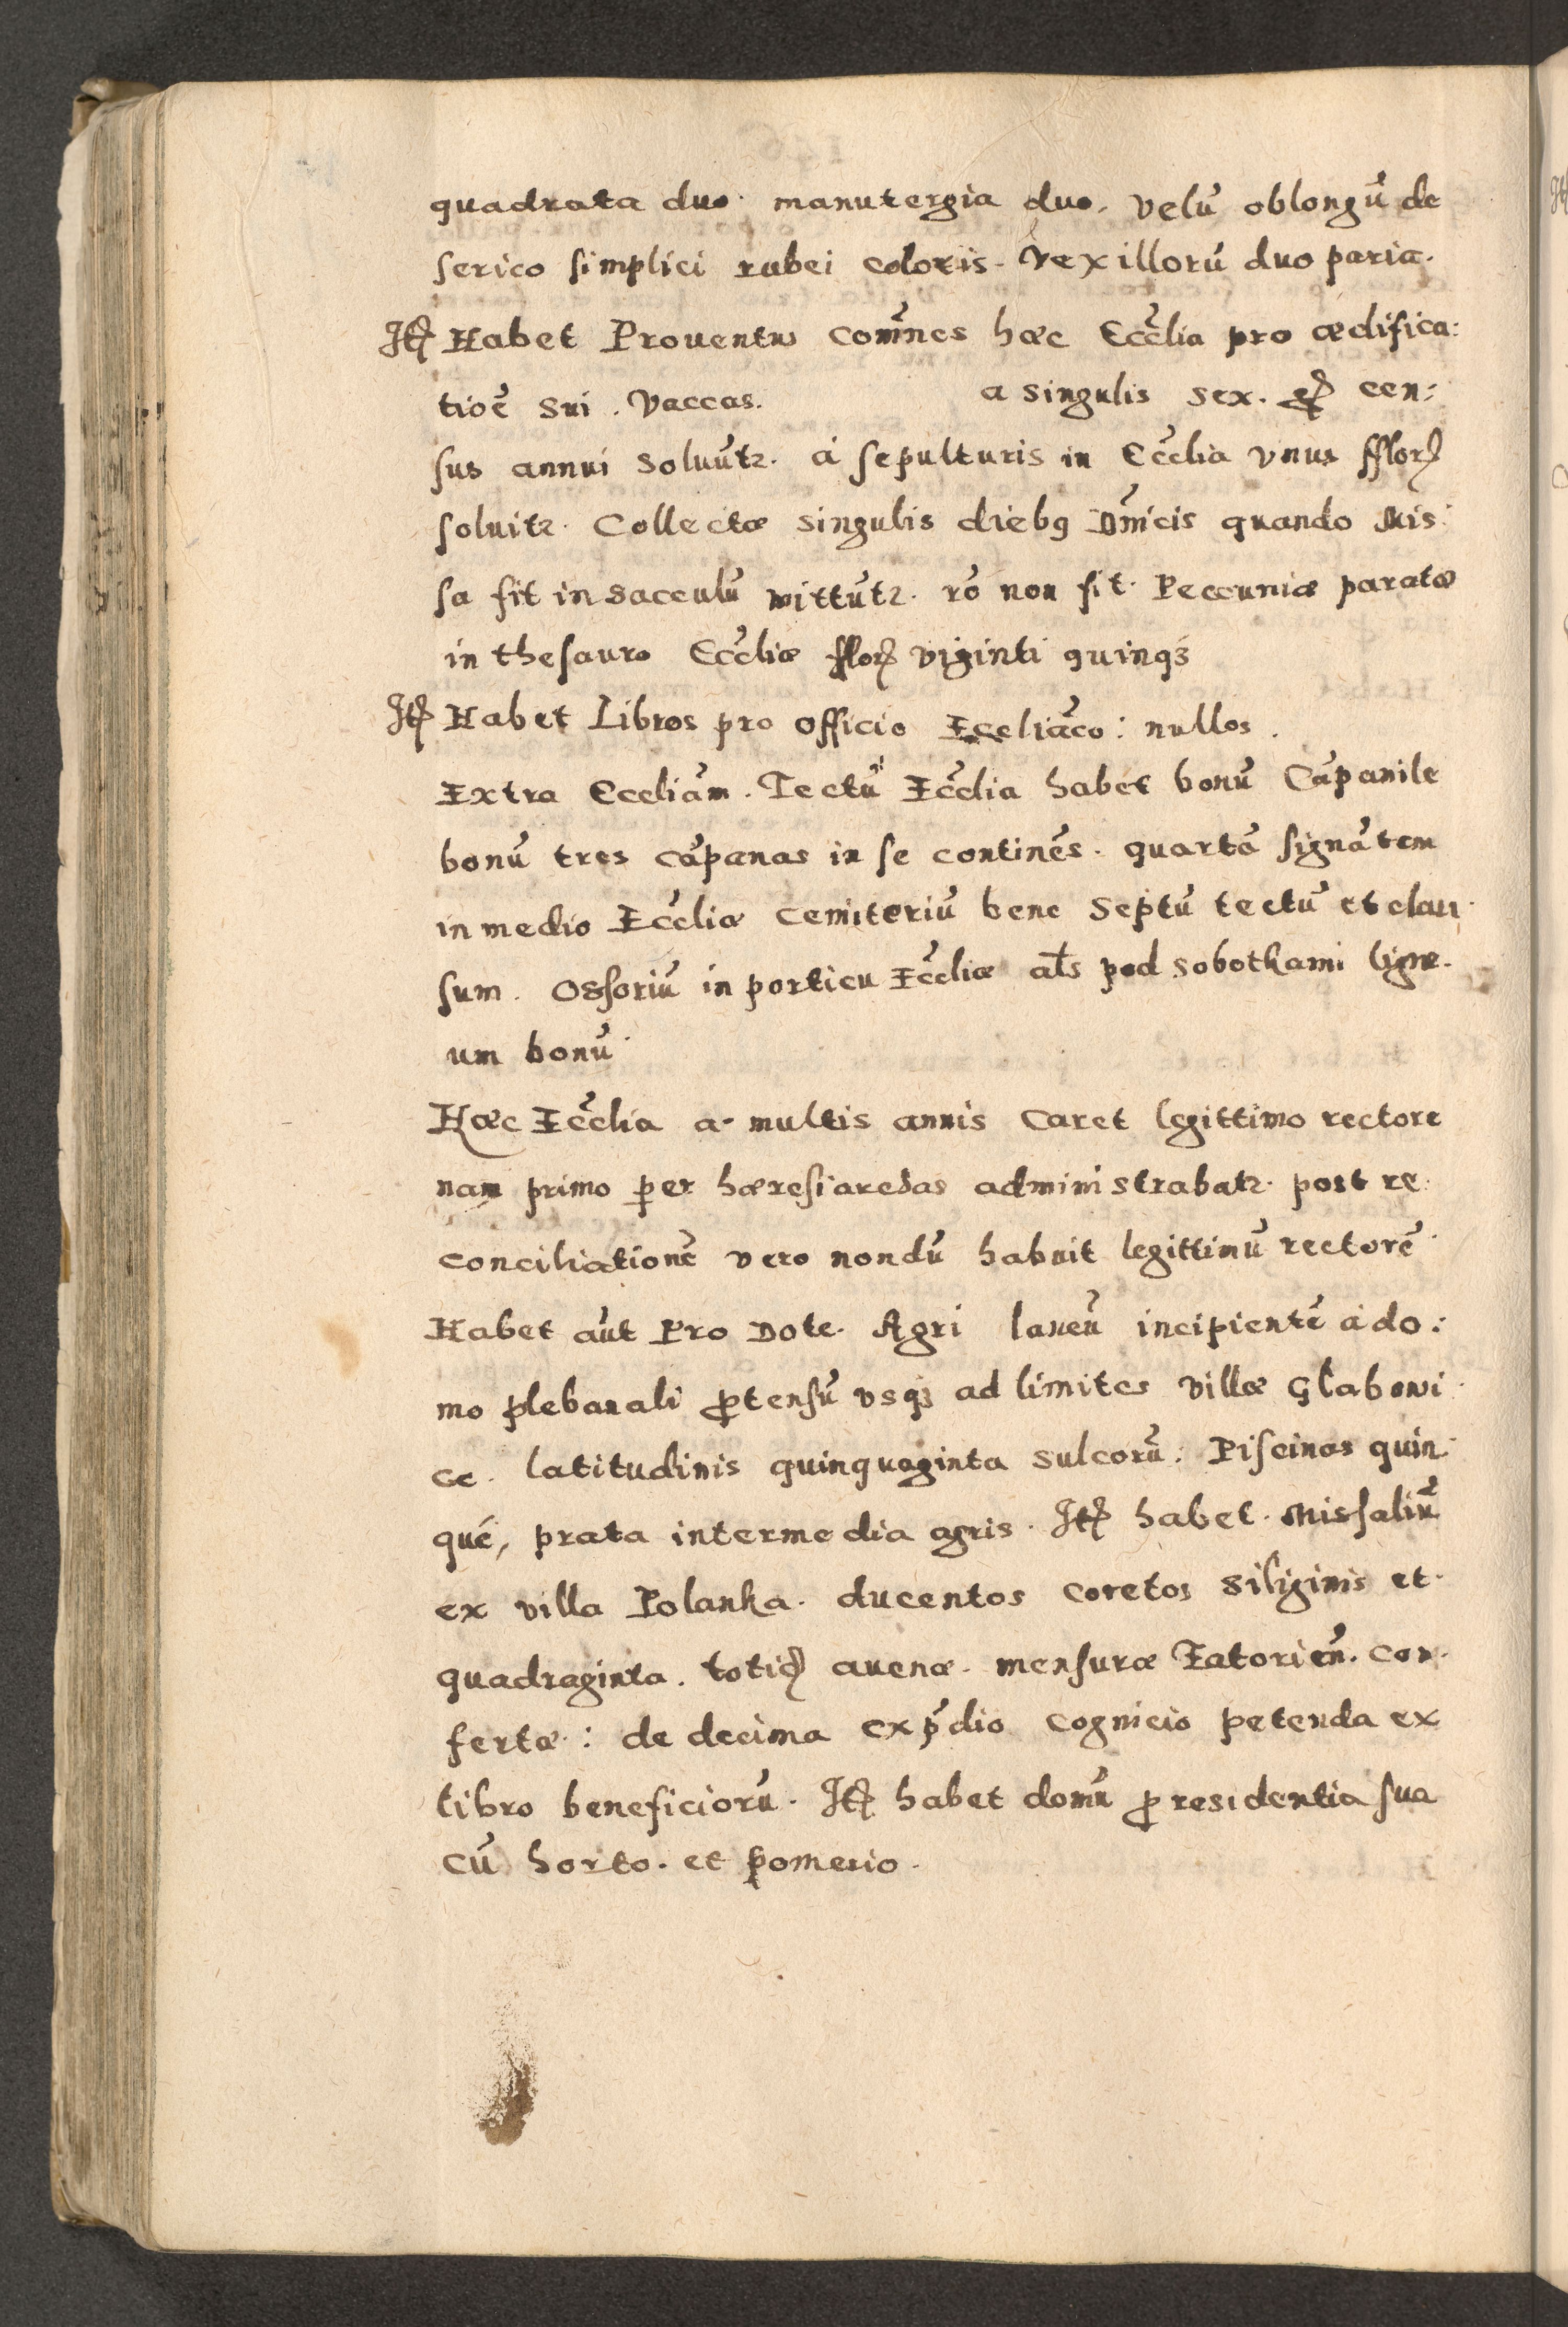 quadrata duo. manutergia duo, velū oblongū de
serico simplici rubei coloris. Vexillorū duo paria.
Itę Habet Prouentus Com̄nes hæc Ecc̄lia pro ædifica:
tioē sui. Vaccas. a singulis sex. gř cen:
sus annui soluūtr. a sepulturis in Ecc̄lia vnus fflorę
soluitr. Collectæ singulis diebꝰ Dm̄icis quando Mis:
sa fit in sacculū mittūtr. rō non fit. Peccuniæ paratæ
in thesauro Ecc̄liæ florę viginti quinqꝫ
Itę Habet Libros pro officio Ecceliāco: nullos.
Extra Eccliām. Tectū Ecc̄lia habet bonū Cāpanile
bonū tres cāpanas in se continēs. quartā signātem
in medio Ecc̄liæ Cemiteriū bene septū tectū et clau
sum. Ossoriū in porticu Ecc̄liæ al̄s pod sobothami ligne.
um bonū
Hæc Ecc̄lia a multis annis Caret legittimo rectore
nam primo per hæresiarchas administrabatr. post re:
conciliationē vero nondū habuit legittimū rectorē
Habet aūt Pro Dote. Agri laneū incipientē a do:
mo plebanali ꝓtensū vsqꝫ ad limites villæ Głabowi
ce. latitudinis quinquaginta sulcorū. Piscinas quin
qué, prata intermedia agris. Itę habet. Missaliū
ex villa Polanka. ducentos coretos siliginis et.
quadraginta. totię auenæ. mensuræ Zatoriēn. con.
fertæ: de decima ex p̄dio cognicio petenda ex
libro beneficiorū. Itę habet domū ꝓ residentia sua
cū horto. et pomerio.